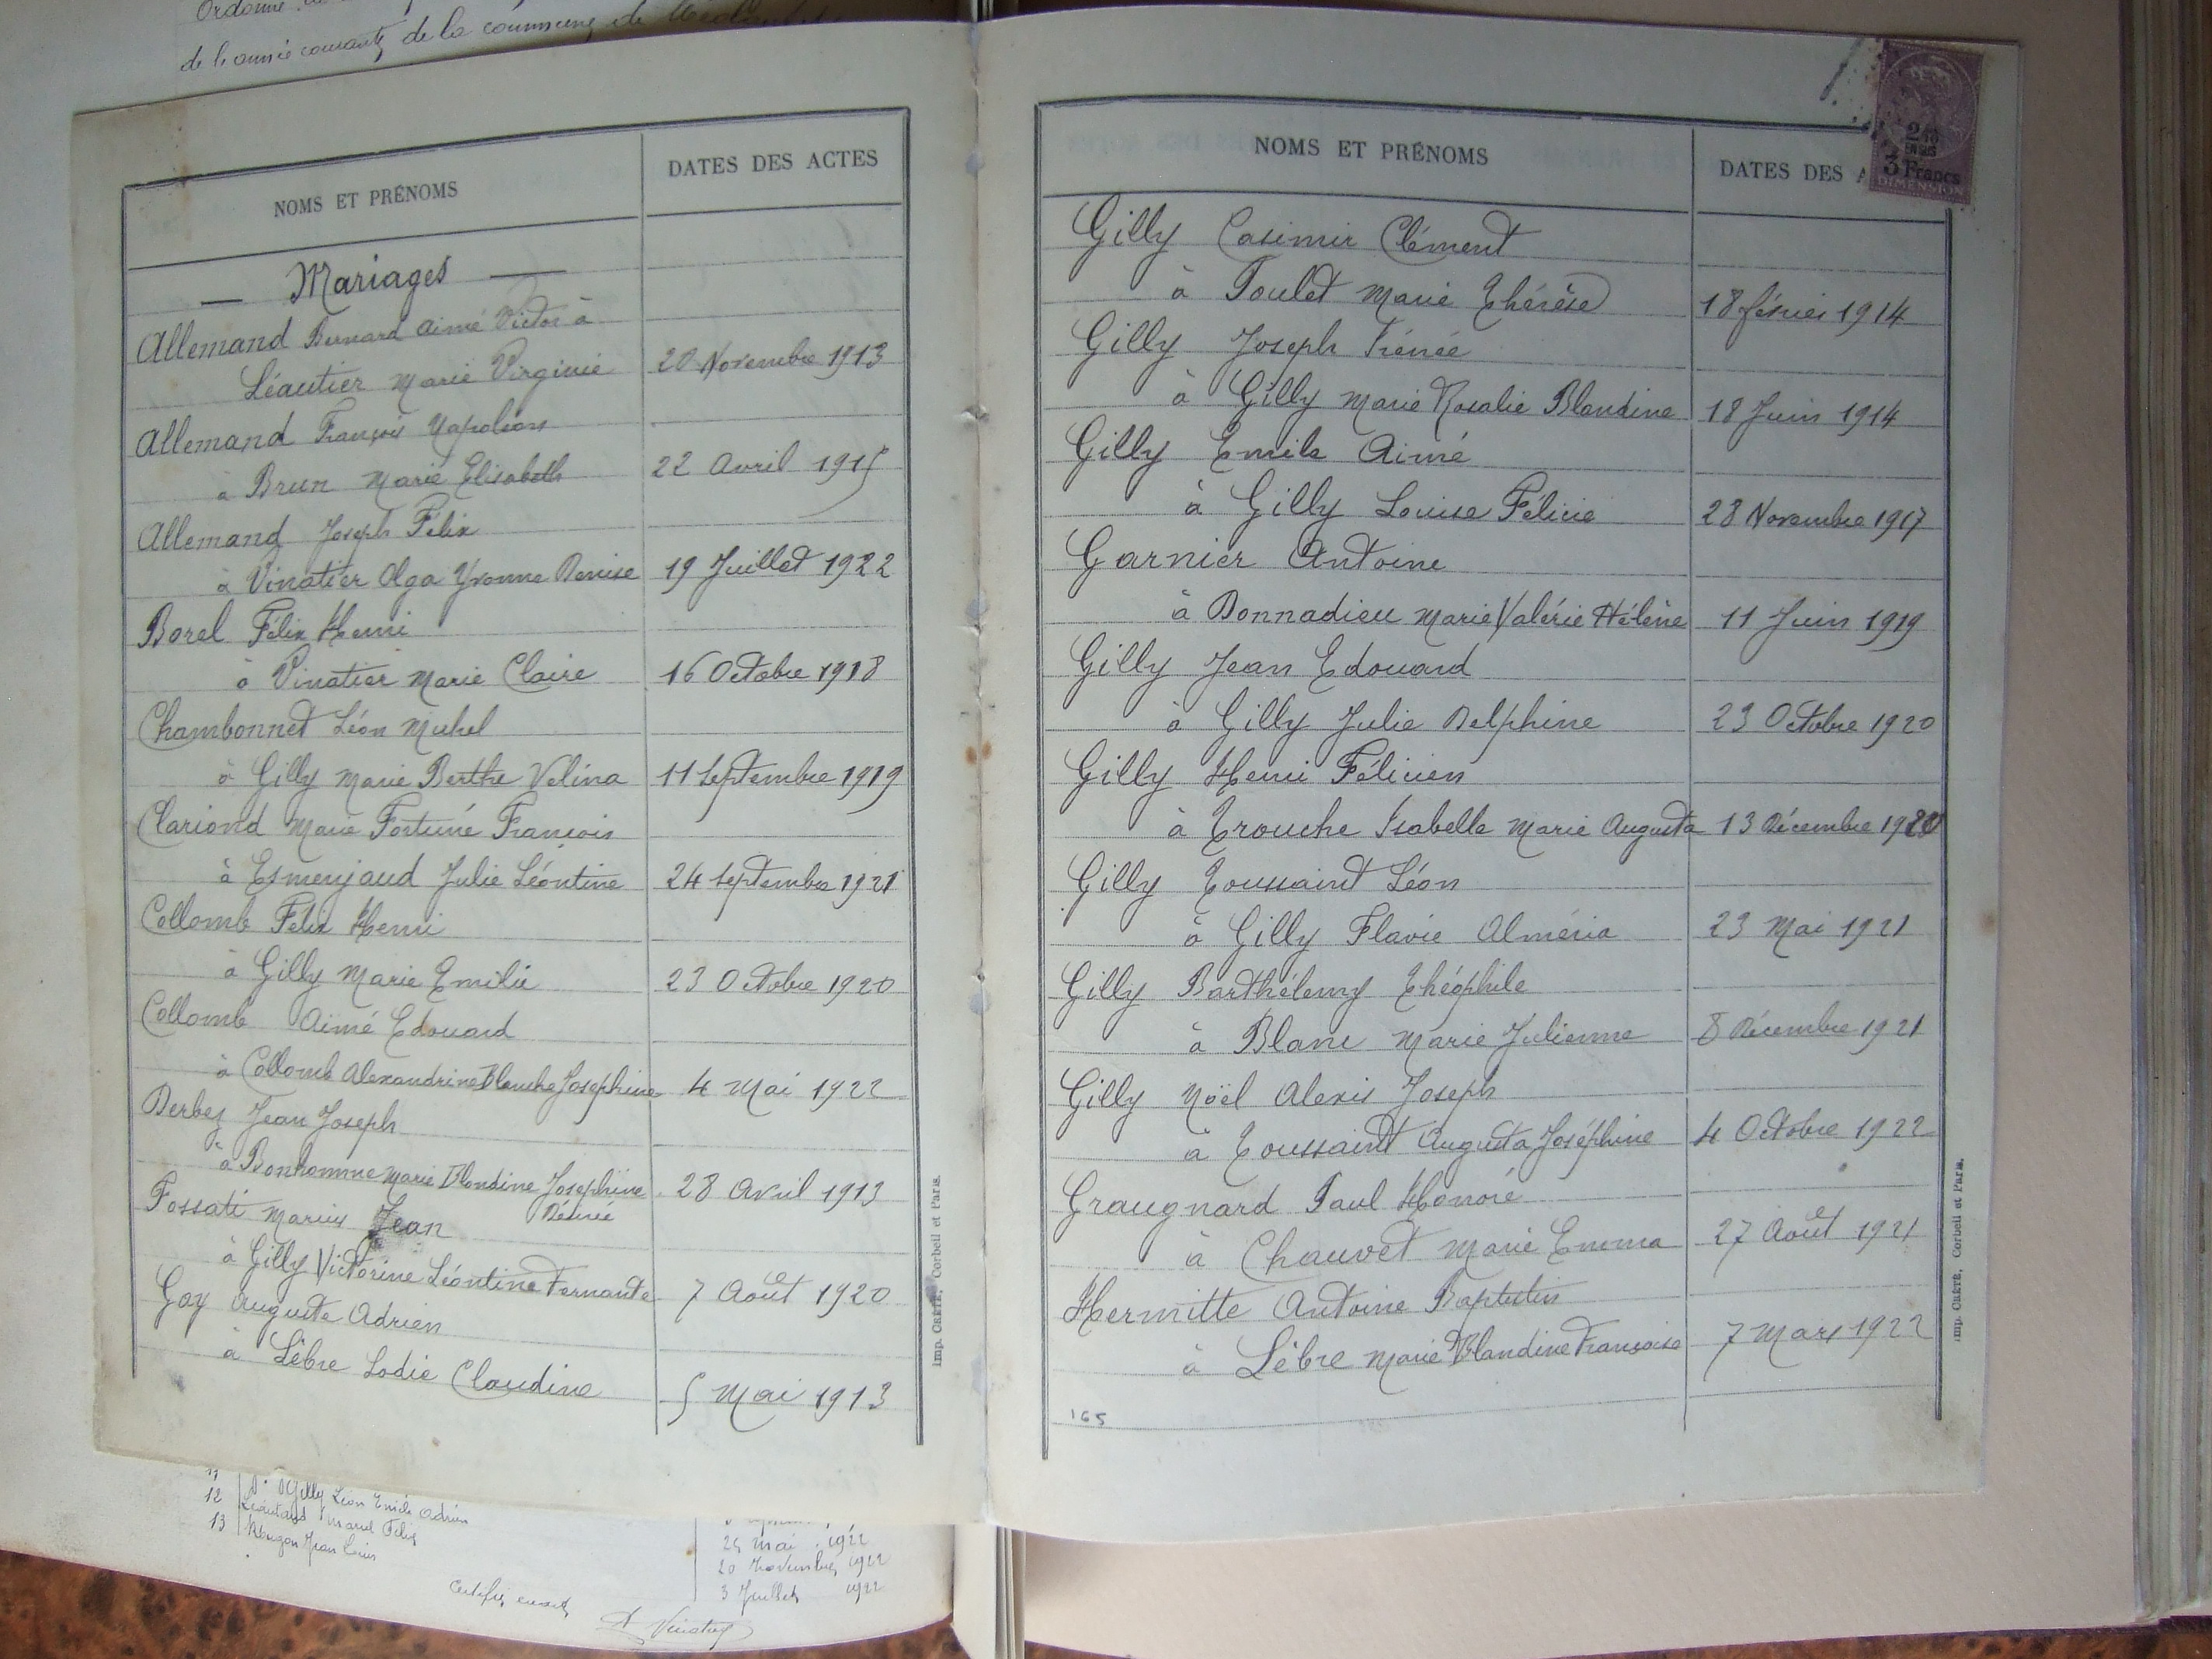 de l'année courante de la commune de
NOMS ET PRÉNOMS
DATES DES ACTES
— Mariages —
Allemand Bernard Aimé Victor à
Léautier Marie Virginie 20 Novembre 1913
Allemand François Napoléon
à Brun Marie Elisabeth 22 Avril 1915
Allemand Joseph Félix
à Vinatier Olga Yvonne Denise 19 Juillet 1922
Borel Félix Henri
à Vinatier Marie Claire 16 Octobre 1918
Chambonnet Léon Michel
à Gilly Marie Berthe Velina 11 Septembre 1919
Clariond Marie Fortuné François
à Esmenjaud Julie Léontine 24 Septembre 1921
Collomb Felix Henri
à Gilly Marie Emilie 23 Octobre 1920
Collomb Aimé Edouard
à Collomb Alexandrine Blanche Josephine 4 Mai 1922
Derbez Jean Joseph
à Bonhomme Marie Blandine Josephine 28 Avril 1913
Désirée
Fossati Marius Jean
à Gilly Victorine Léontine Fernande 7 Août 1920
Goy Auguste Adrien
à Lèbre Lodie Claudine 5 Mai 1913
Imp. CRÉTÉ, Corbeil et Paris.
12 Léautaud Marcel Félix
13 Jean
25 Mai 1922
20 Novembre 1922
3 Juillet 1922
Certifié exact
NOMS ET PRÉNOMS
DATES DES A
2/10
EN SUS
3 Francs
DIMENSION
Gilly Casimir Clément
à Poulet Marie Thérèse 18 février 1914
Gilly Joseph Irénée
à Gilly Marie Rosalie Blandine 18 Juin 1914
Gilly Emile Aimé
à Gilly Louise Félicie 28 Novembre 1917
Garnier Antoine
à Donnadieu Marie Valérie Hélène 11 Juin 1919
Gilly Jean Edouard
à Gilly Julie Delphine 23 Octobre 1920
Gilly Henri Félicien
à Trouche Isabelle Marie Augusta 13 Décembre 1920
Gilly Toussaint Léon
à Gilly Flavie Alméria 23 Mai 1921
Gilly Barthélemy Théophile
à Blanc Marie Julienne 8 Décembre 1921
Gilly Noël Alexis Joseph
à Toussaint Augusta Joséphine 4 Octobre 1922
Graugnard Paul Honoré
à Chauvet Marie Emma 27 Août 1921
Hermitte Antoine Baptistin
à Lèbre Marie Blandine Françoise 7 Mars 1922
165
Imp. CRÉTÉ, Corbeil et Paris.